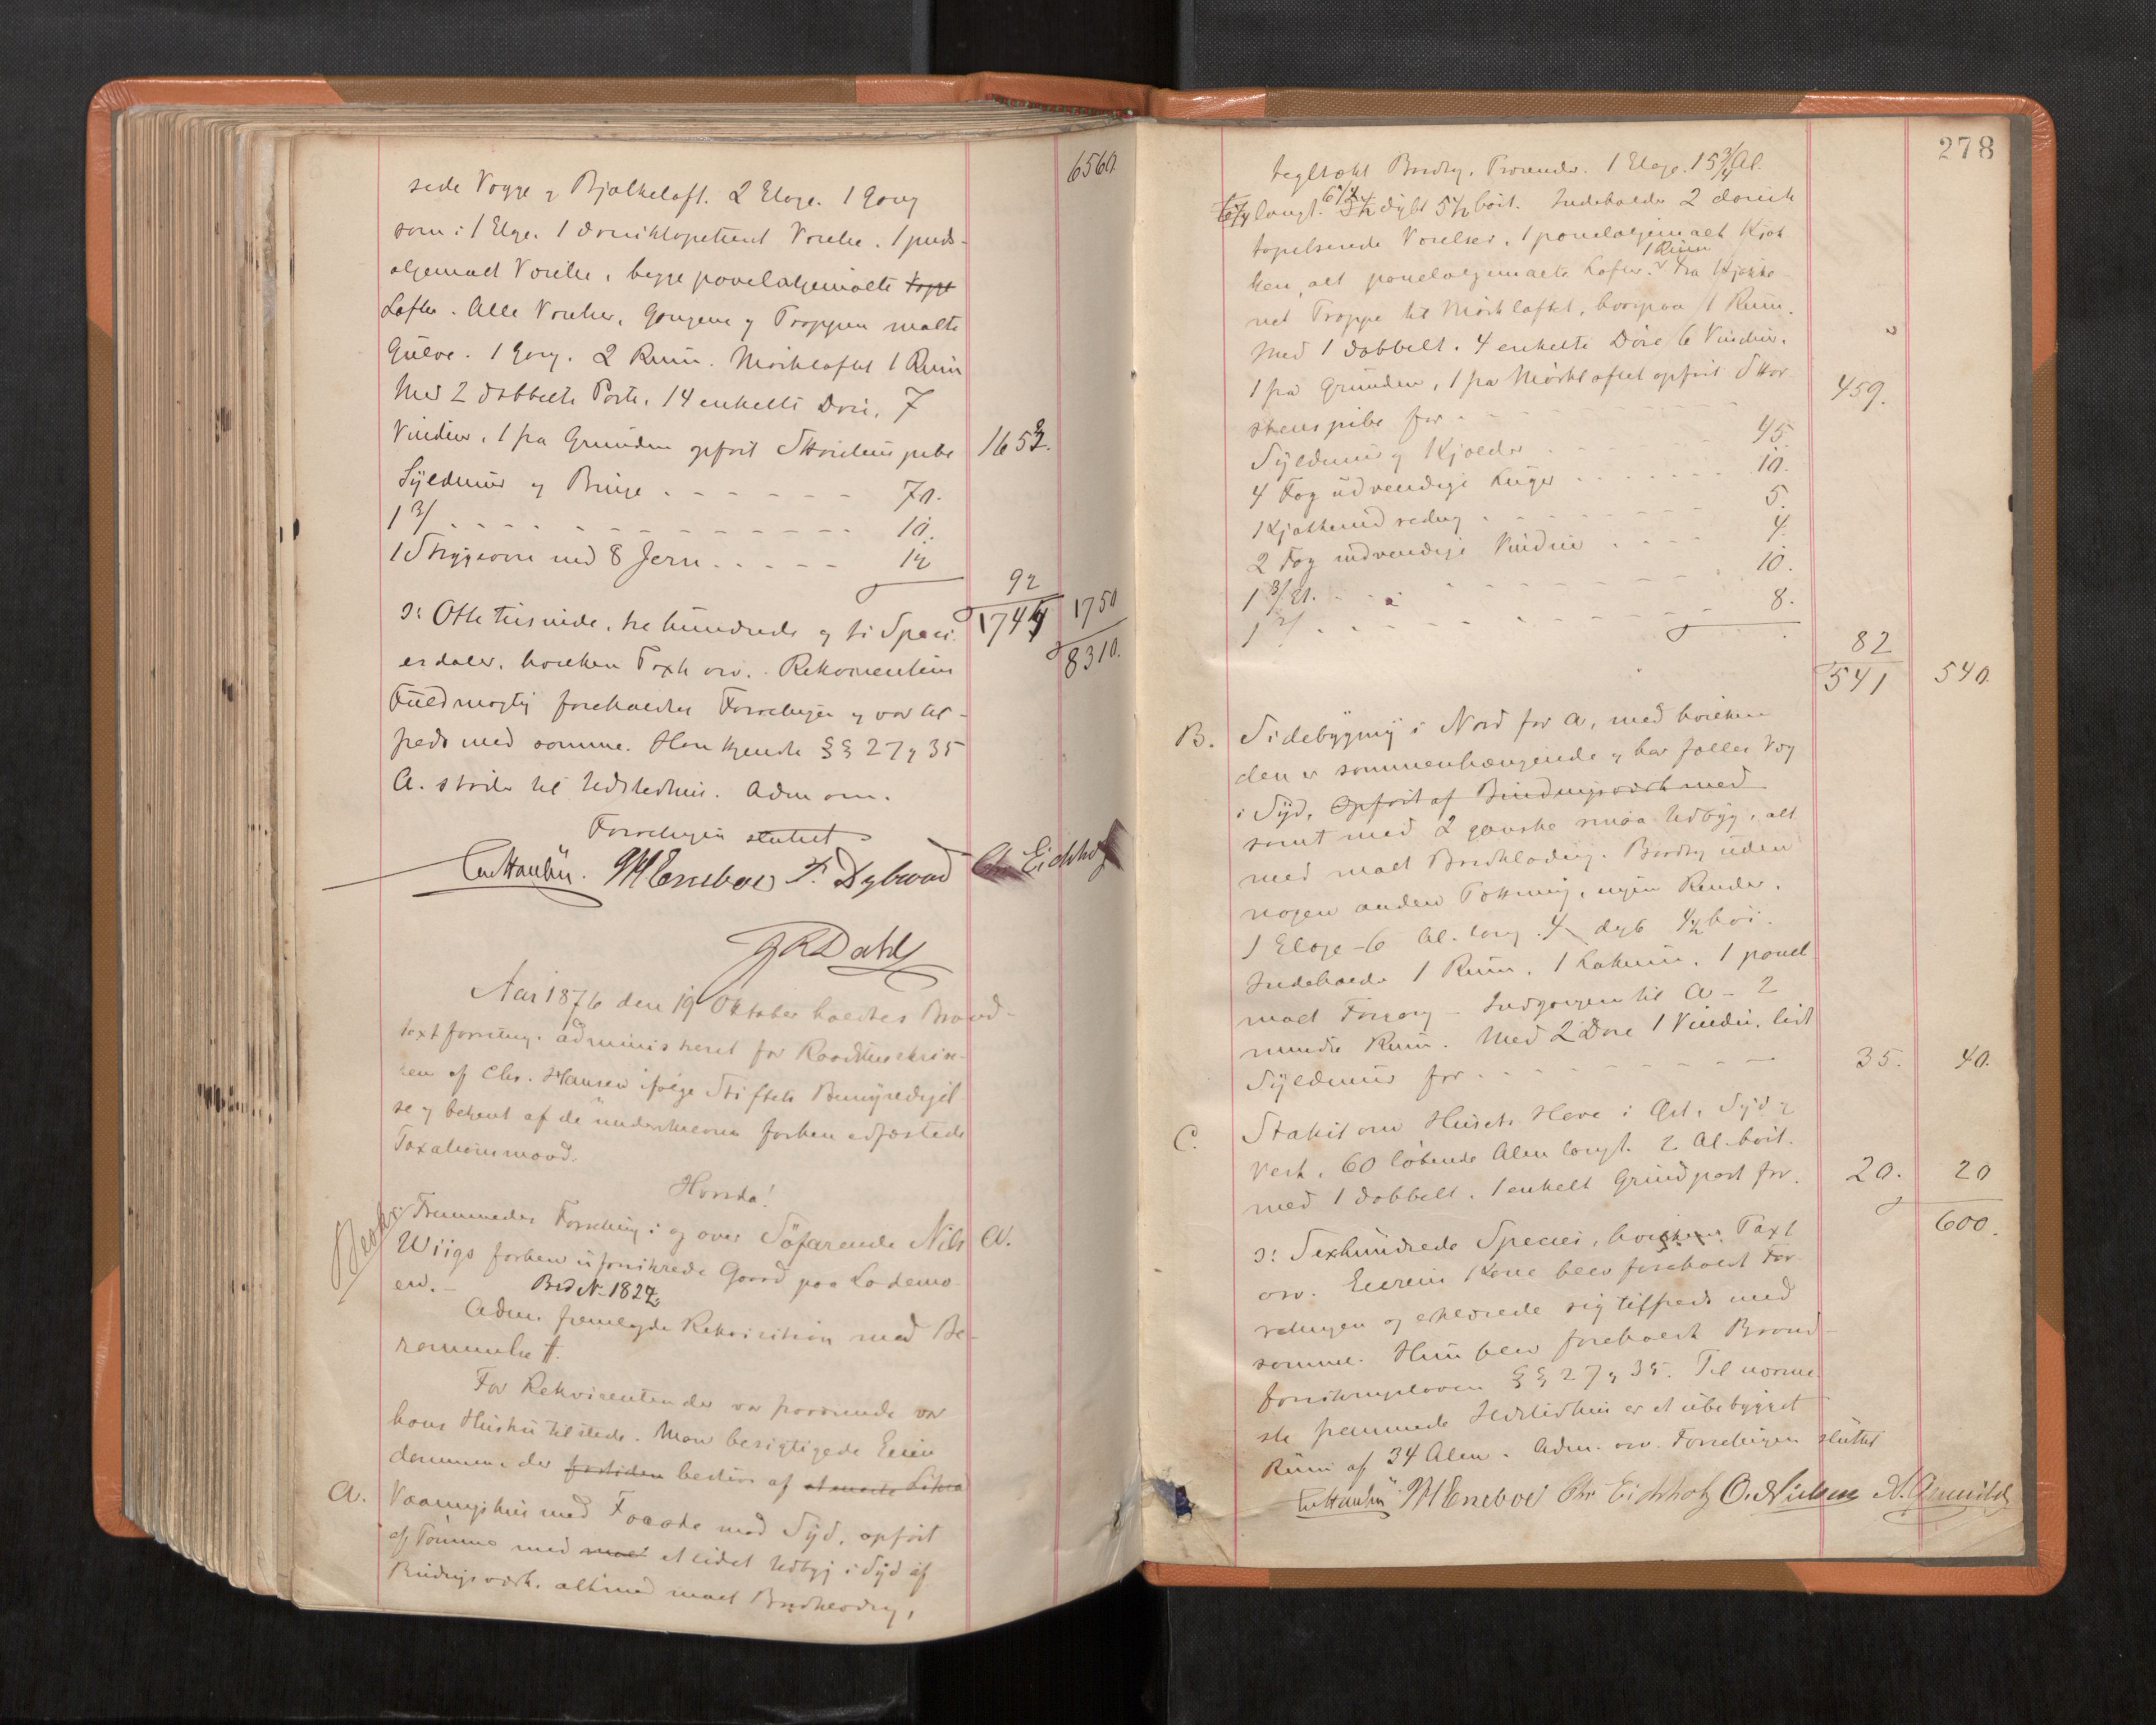 6560.
sede Vægge og Bjælkeloft. 2 Etage. 1 Gang
som i 1 Etge. 1 dansktapetseret Værelse. 1 puds-
oljemalt Værelse, begge paneloljemalte
Lofter. Alle Værelser, Gangene og Trappen malte
Gulve. 1 Gang. 2 Rum. Mørkloftet 1 Rum
Med 2 dobbelte Porte, 14 enkelte Døre, 7
Vinduer, 1 fra Grunden opført Skorstenspibe 1652.
Syldmur og Binge - - - - - - 70.
1 3/ - - - - - - - - - - 10.
1 Strygeovn med 8 Jern - - - - - 12
92
1744 1750
8310.
ɔ: Otte tusinde, tre hundrede og ti Speci-
esdaler, hvilken Taxt osv. Rekvirentens
Fuldmægtig foreholdtes Forretningen og var til-
freds med samme. Han kjendte §§ 27 og 35
A. støder til Ildstedhus. Adm om.
Forretningen sluttet
Chr Hansen. M Eneboe F. Dybwad Chr Eichholz
J R Dahl
Aar 1876 den 19 Oktober holdtes Brand-
taxtforretng. administreret for Raadstueskrive-
ren af Chr. Hansen ifølge Stiftets Bemyndigel-
se og betjent af de underskrevne forhen edfæstede
Taxationsmænd.
Hvorda!
Fremmedes Forretning i og over Søfarende Nils
Wiigs forhen uforsikrede Gaard paa Lademo-
en. - Brd No 1827
Adm. fremlagde Rekvisition med Be-
rammelse †.
For Rekvirenten der var fraværende var
hans Hustru tilstede. Man besigtigede Eien-
dommen der bestaar af
A. Vaaningshus med Facade mod Syd, opført
af Tømmer med et lidet Udbyg i Syd af
Bindingsværk, alt med malt Bordklædng,
278
tegltækt Bordtg. Trærender. 1 Etage. 15 3/4 Al.
langt. 6 1/2 dybt 5 1/2 høit. Indeholder 2 dansk
tapetserede Værelser, 1 paneloljemalt Kjøk-
ken, alt paneloljemalte Lofter. 1 Rum Fra Kjøkke-
net Trappe til Mørkloftet, hvorpaa 1 Rum.
Med 1 dobbelt. 4 enkelte Døre 6 Vinduer.
1 fra Grunden, 1 fra Mørkloftet opført Skor-
stenspibe for - - - - 459.
Syldmur og Kjælder - - - - 45.
4 Fag udvendige Luger - - - - 10.
1 Kjøkkenindredng - - - - 5.
2 Fag indvendige Vinduer - - - - 4.
1 3/Et. - - - - 10.
1 2/ - - - - 8.
82
541 540.
B. Sidebygning i Nord for A, med hvilken
den er sammenhængende og har fælles Væg
i Syd, Opført af Bindingsværk med
samt med 2 ganske smaa Udbyg, alt
med malt Bordklædng. Bordtg uden
nogen anden Tækning, ingen Render.
1 Etage - 6 Al. lang. 4 dyb 4 1/2 høi.
Indeholder 1 Rum, 1 Lokum, 1 panel-
malt Forgang - Indgangen til A - 2
mindre Rum. Med 2 Døre 1 Vindu, lidt
Syldmur for - - - - 35. 40.
C. Stakit om Husets Have i Øst, Syd og
Vest, 60 løbende Alen langt. 2 Al. høit.
med 1 dobbelt, 1 enkelt Grindport for. 20. 20
600.
ɔ: Sexhundrede Species, hvilken Taxt
osv. Eierens Kone blev foreholdt For-
retningen og erklærede sig tilfreds med
samme. Hun blev foreholdt Brand-
forsikringsloven §§ 27 og 35. Til nærme-
ste fremmede Ildstedhus er et ubebygget
Rum af 34 Alen. Adm. osv. Forretningen sluttet
Chr Hansen M Eneboe Chr Eichholz O. Nielsen